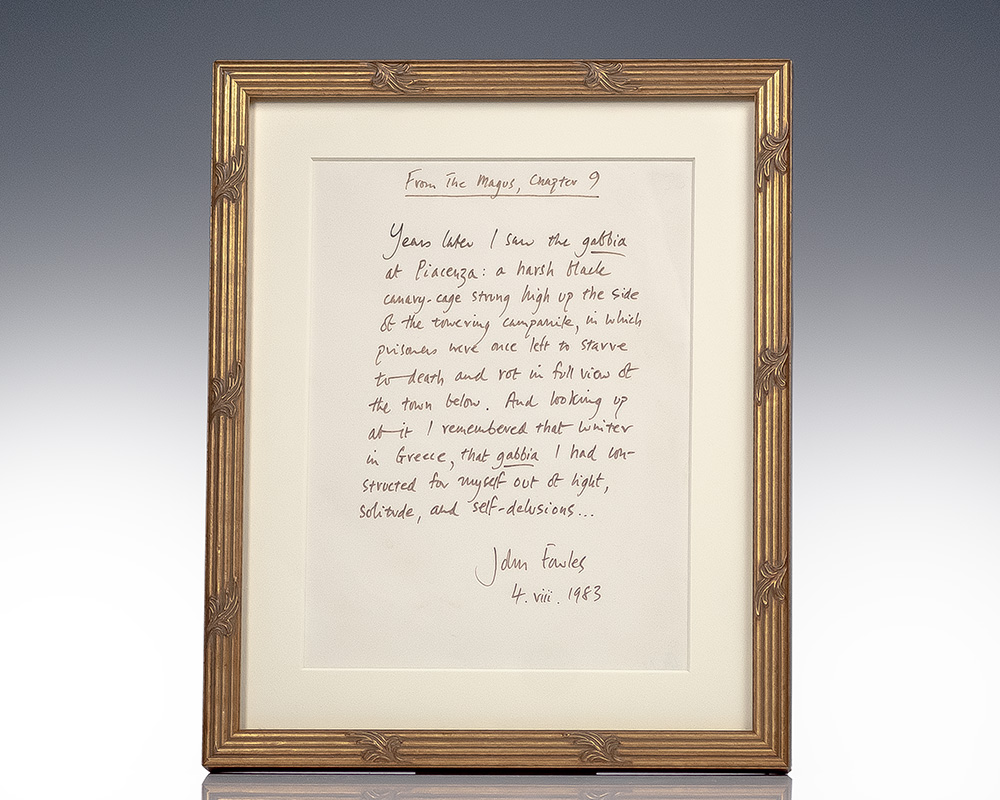 From The Magus, Chapter 9
Years later I saw the gabbia
at Piacenza: a harsh black
canary-cage strung high up the side
of the towering campanile, in which
prisoners were once left to starve
to death and rot in full view of
the town below. And looking up
at it I remembered that winter
in Greece, that gabbia I had con-
structed for myself out of light,
solitude, and self-delusions...
John Fowles
4. viii. 1983